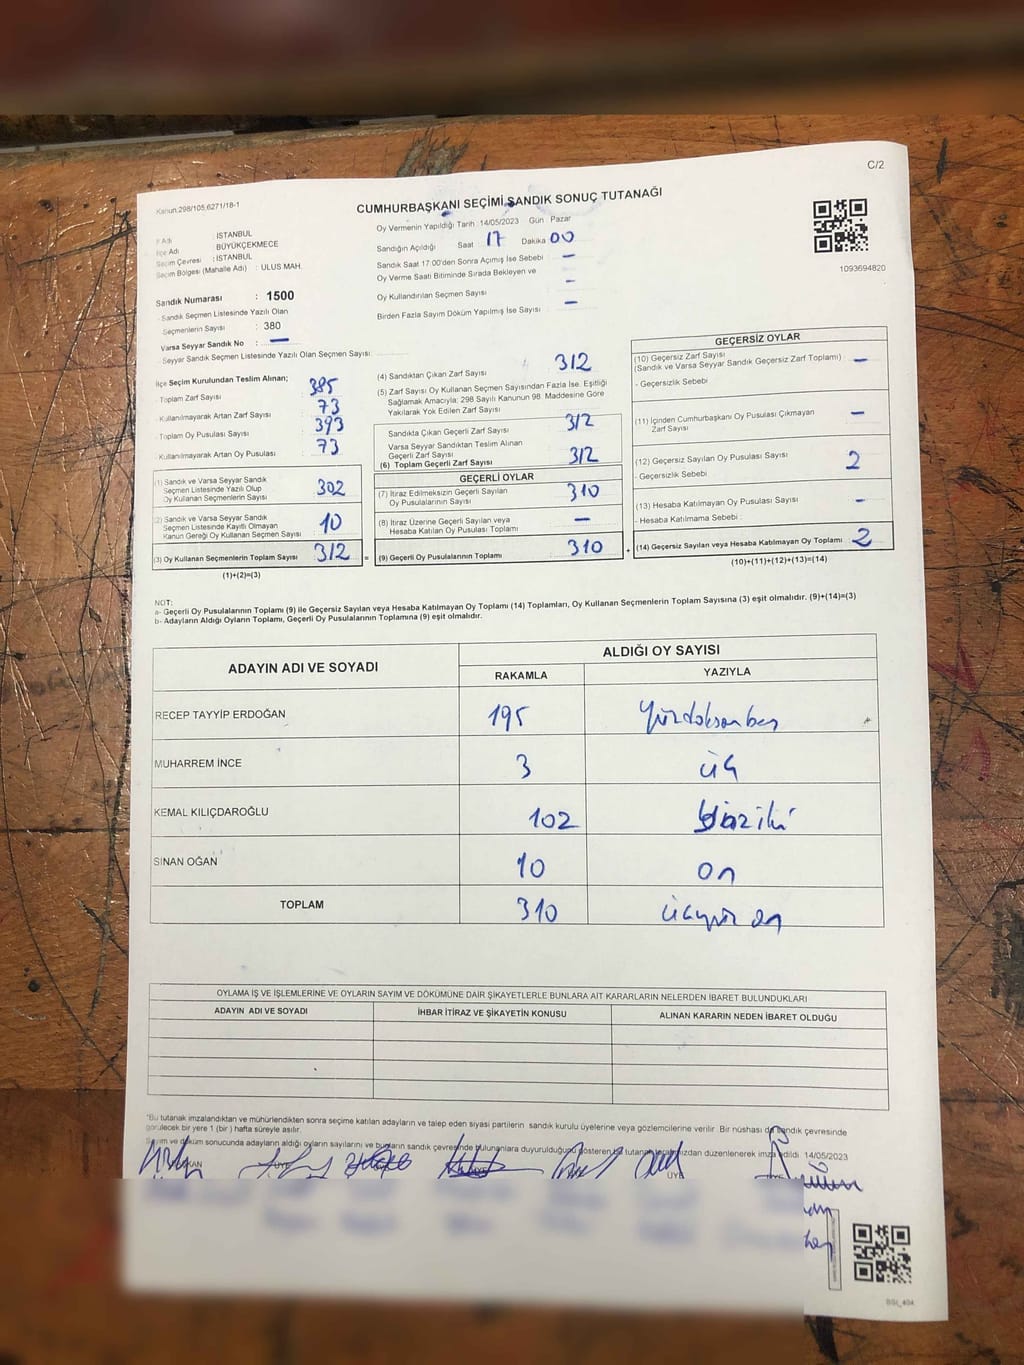 C/2
Kanun:298/105,6271/18-1
CUMHURBAŞKANI SEÇİMİ SANDIK SONUÇ TUTANAĞI
İl Adı : İSTANBUL
İlçe Adı : BÜYÜKÇEKMECE
Seçim Çevresi : İSTANBUL
Seçim Bölgesi (Mahalle Adı) : ULUS MAH.
Sandık Numarası : 1500
- Sandık Seçmen Listesinde Yazılı Olan
Seçmenlerin Sayısı : 380
Varsa Seyyar Sandık No : —
- Seyyar Sandık Seçmen Listesinde Yazılı Olan Seçmen Sayısı:
Oy Vermenin Yapıldığı Tarih :14/05/2023 Gün Pazar
Sandığın Açıldığı Saat 17 Dakika 00
Sandık Saat 17:00'den Sonra Açımış İse Sebebi —
Oy Verme Saati Bitiminde Sırada Bekleyen ve
Oy Kullandırılan Seçmen Sayısı —
Birden Fazla Sayım Döküm Yapılmış İse Sayısı —
1093694820
İlçe Seçim Kurulundan Teslim Alınan;
- Toplam Zarf Sayısı : 385
- Kullanılmayarak Artan Zarf Sayısı : 73
- Toplam Oy Pusulası Sayısı : 393
- Kullanılmayarak Artan Oy Pusulası : 73
(1) Sandık ve Varsa Seyyar Sandık
Seçmen Listesinde Yazılı Olup
Oy Kullanan Seçmenlerin Sayısı 302
(2) Sandık ve Varsa Seyyar Sandık
Seçmen Listesinde Kayıtlı Olmayan
Kanun Gereği Oy Kullanan Seçmen Sayısı 10
(3) Oy Kullanan Seçmenlerin Toplam Sayısı 312 =
(1)+(2)=(3)
(4) Sandıktan Çıkan Zarf Sayısı 312
(5) Zarf Sayısı Oy Kullanan Seçmen Sayısından Fazla İse, Eşitliği
Sağlamak Amacıyla; 298 Sayılı Kanunun 98. Maddesine Göre
Yakılarak Yok Edilen Zarf Sayısı
Sandıkta Çıkan Geçerli Zarf Sayısı 312
Varsa Seyyar Sandıktan Teslim Alınan
Geçerli Zarf Sayısı
(6) Toplam Geçerli Zarf Sayısı 312
GEÇERLİ OYLAR
(7) İtiraz Edilmeksizin Geçerli Sayılan
Oy Pusulalarının Sayısı 310
(8) İtiraz Üzerine Geçerli Sayılan veya
Hesaba Katılan Oy Pusulası Toplamı —
(9) Geçerli Oy Pusulalarının Toplamı 310 +
GEÇERSİZ OYLAR
(10) Geçersiz Zarf Sayısı
(Sandık ve Varsa Seyyar Sandık Geçersiz Zarf Toplamı) —
- Geçersizlik Sebebi
(11) İçinden Cumhurbaşkanı Oy Pusulası Çıkmayan
Zarf Sayısı —
(12) Geçersiz Sayılan Oy Pusulası Sayısı 2
- Geçersizlik Sebebi
(13) Hesaba Katılmayan Oy Pusulası Sayısı —
- Hesaba Katılmama Sebebi :
(14) Geçersiz Sayılan veya Hesaba Katılmayan Oy Toplamı 2
(10)+(11)+(12)+(13)=(14)
NOT:
a- Geçerli Oy Pusulalarının Toplamı (9) ile Geçersiz Sayılan veya Hesaba Katılmayan Oy Toplamı (14) Toplamları, Oy Kullanan Seçmenlerin Toplam Sayısına (3) eşit olmalıdır. (9)+(14)=(3)
b- Adayların Aldığı Oyların Toplamı, Geçerli Oy Pusulalarının Toplamına (9) eşit olmalıdır.
ADAYIN ADI VE SOYADI
ALDIĞI OY SAYISI
RAKAMLA YAZIYLA
RECEP TAYYİP ERDOĞAN 195 Yüzdoksanbeş
MUHARREM İNCE 3 üç
KEMAL KILIÇDAROĞLU 102
SİNAN OĞAN 10 on
TOPLAM 310 üçyüz on
OYLAMA İŞ VE İŞLEMLERİNE VE OYLARIN SAYIM VE DÖKÜMÜNE DAİR ŞİKAYETLERLE BUNLARA AİT KARARLARIN NELERDEN İBARET BULUNDUKLARI
ADAYIN ADI VE SOYADI İHBAR İTİRAZ VE ŞİKAYETİN KONUSU ALINAN KARARIN NEDEN İBARET OLDUĞU
*Bu tutanak imzalandıktan ve mühürlendikten sonra seçime katılan adayların ve talep eden siyasi partilerin sandık kurulu üyelerine veya gözlemcilerine verilir. Bir nüshası da sandık çevresinde
görülecek bir yere 1 (bir) hafta süreyle asılır.
Sayım ve döküm sonucunda adayların aldığı oyların sayılarını ve bunların sandık çevresinde bulunanlara duyurulduğunu gösteren bu tutanak tarafımızdan düzenlenerek imza edildi. 14/05/2023
ÜYE